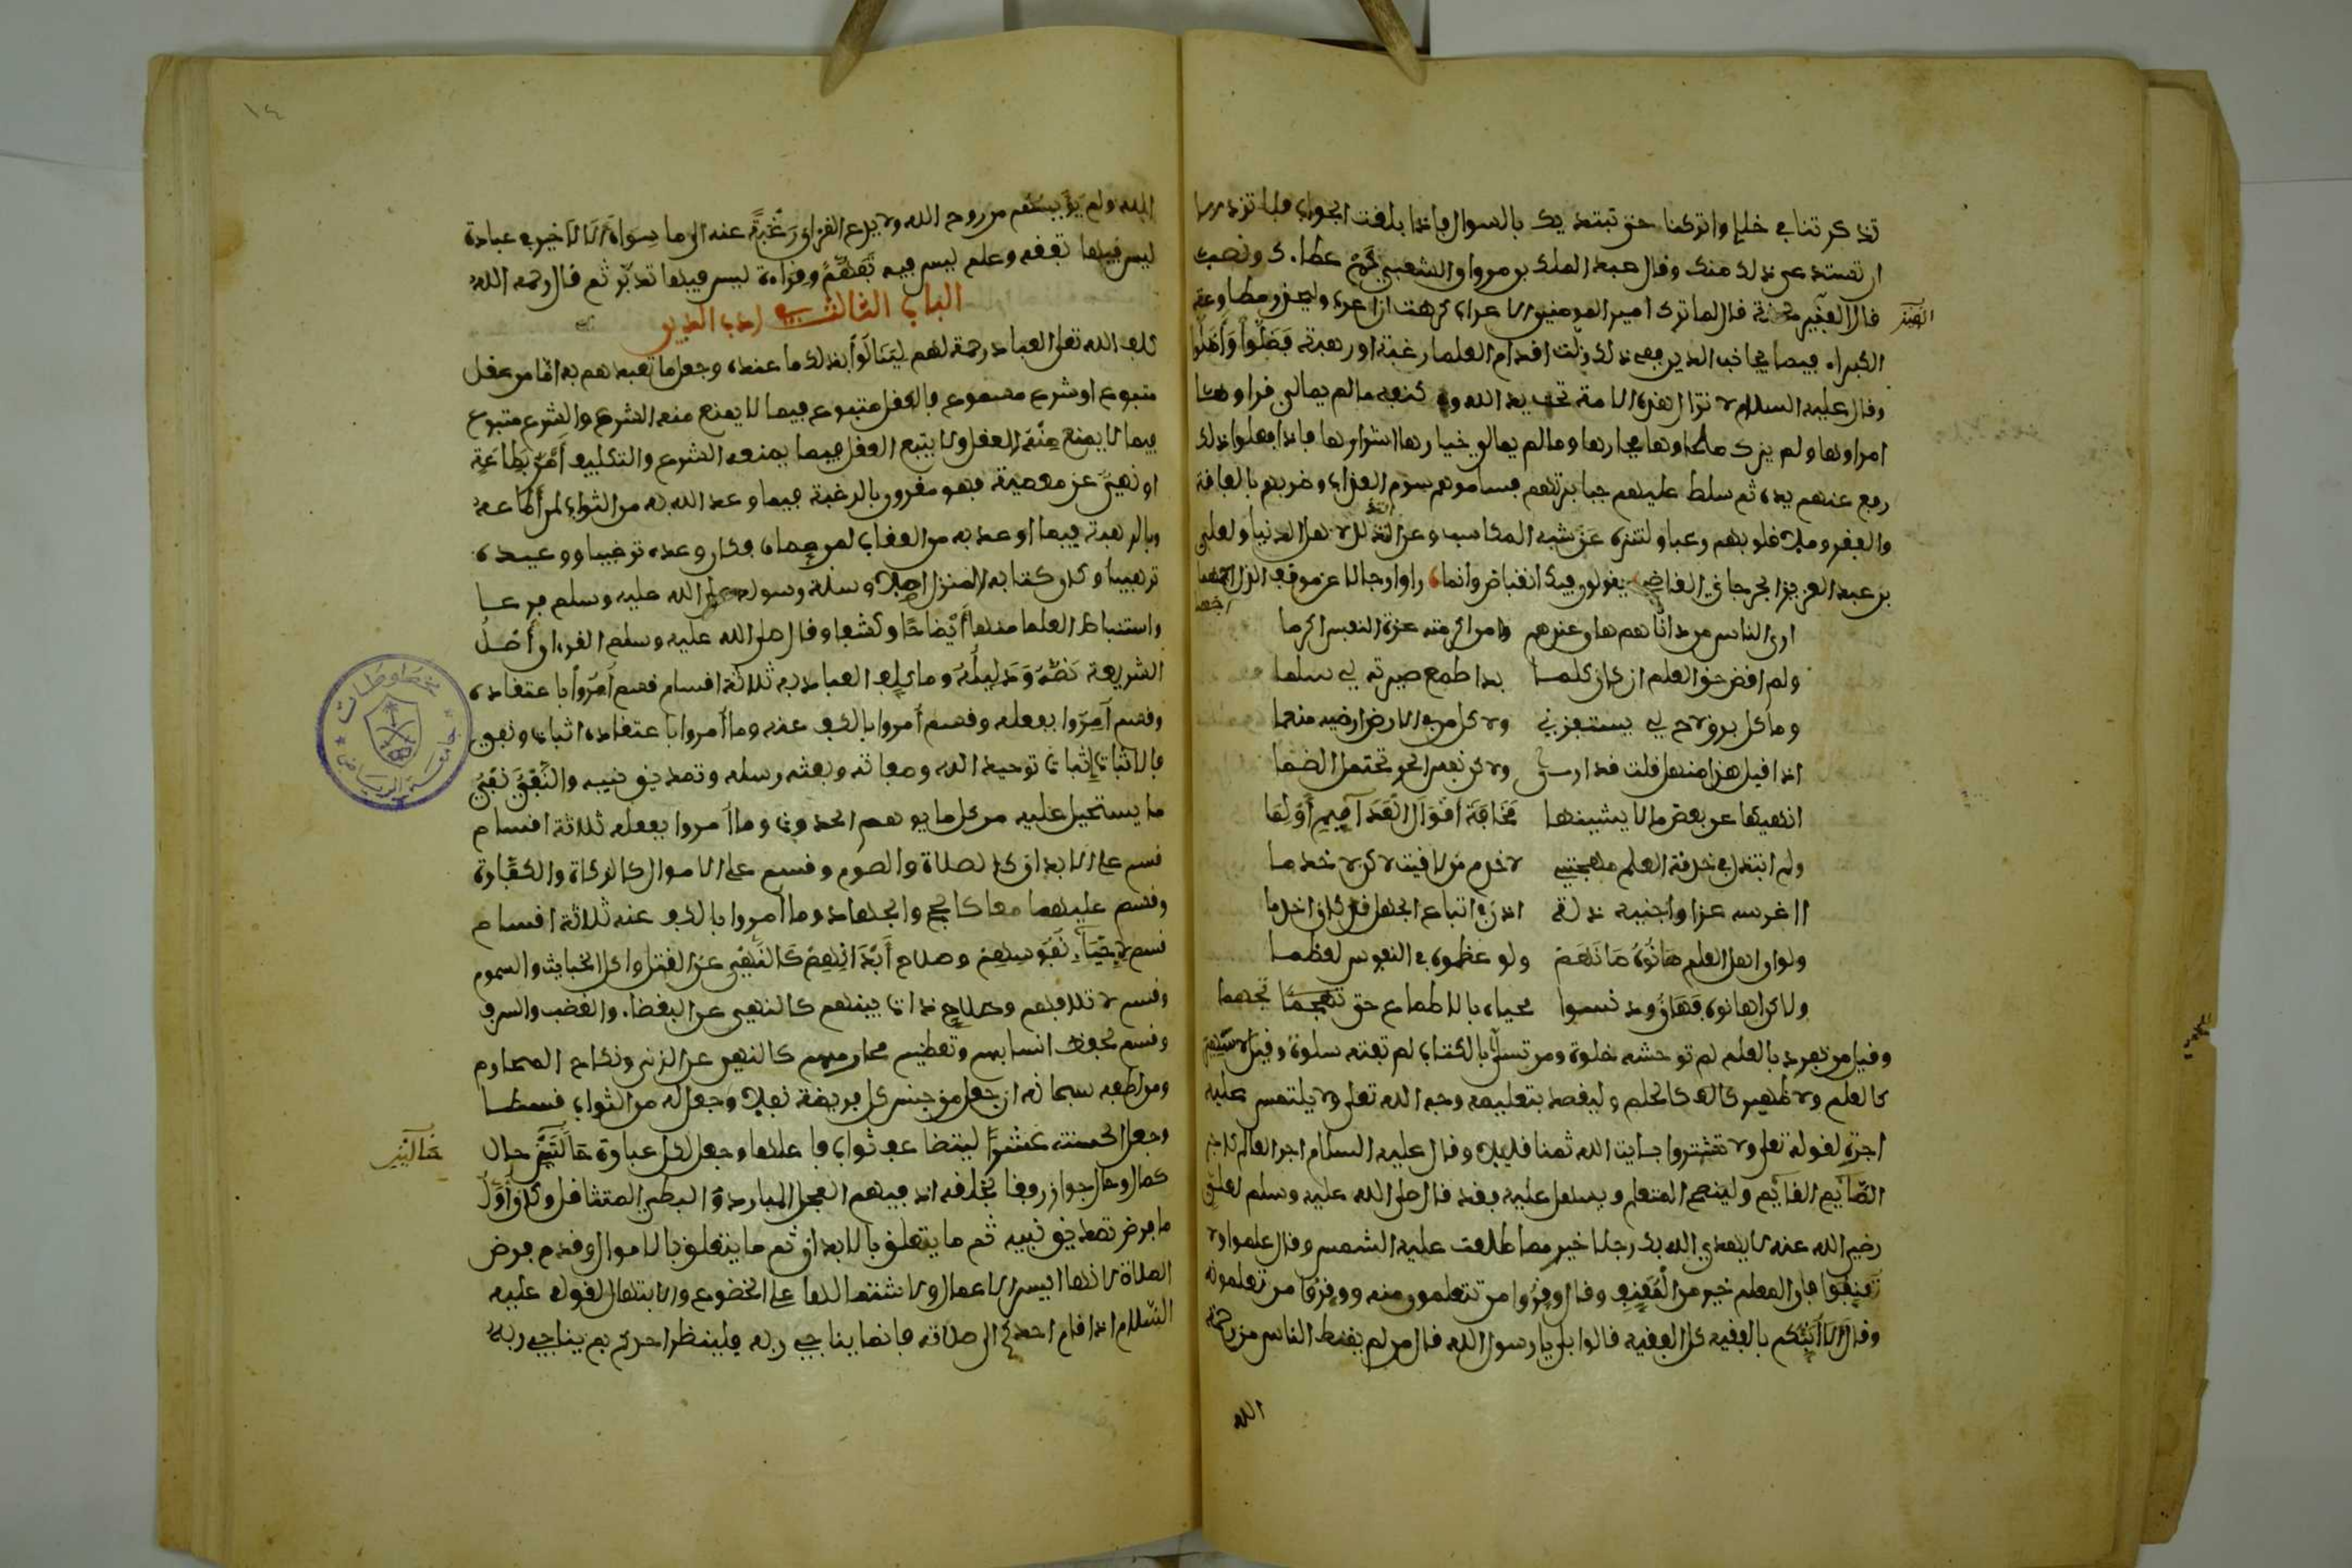 تذكرتنا في خلإ واتركنا حتى نبتديك بالسوال فاذا بلغت الجواب فلا تزد الا
ان تستدعي ذلك منك وقال عبد الملك بن مروان للشعبي كم عطاءك ونصب
قال الفين قال لما ترك امير المومنين الاعراب كرهت ان اعرب وليحذر مطاوعة
الكبراء فيما يجانب الدين ففي ذلك زلت اقدام العلما رغبة او رهبة فضلوا وأضلوا
وقال عليه السلام لا تزال هذه الامة تحت يد الله وفي كنفه ما لم يمالي قراوها
امراوها ولم يزك صلحاوها فجارها وما لم يمالي خيارها اشرارها فاذا فعلوا ذلك
رفع عنهم يده ثم سلط عليهم جبابرتهم فساموهم سوم العذاب وضربهم بالفاقة
والفقر وملا قلوبهم رعبا ولتنزه عن شبه المكاسب وعن التذلل لاهل الدنيا ولعلي
بن عبد العزيز الجرجاني القاضي يقولون فيك انقباض وانما راوا رجلا عن موقف الذل احجما
ارى الناس من داناهم هان عندهم ومن اكرمته عزة النفس اكرما
ولم اقض حق العلم ان كان كلما بدا طمع صيرته لي سلما
وما كل برق لاح لي يستفزني ولا كل من في الارض ارضيه منعما
اذا قيل هذا منهل قلت قد ارى ولكن نفس الحر تحتمل الضما
انهنهها عن بعض ما لا يشينها مخافة أقوال العدا فيم أو لما
ولم ابتذل في خدمة العلم مهجتي لاخدم من لاقيت لاكن لاخدما
ااغرسه عزا واجنيه ذلة اذن فاتباع الجهل قد كان احزما
ولو ان اهل العلم صانوه صانهم ولو عظموه في النفوس لعظما
ولاكن اهانوه فهان ودنسوا محياه بالاطماع حتى تجهما
وقيل من تفرد بالعلم لم توحشه خلوة ومن تسلى بالكتاب لم تفته سلوة وقيل لا سمير
كالعلم ولا ظهير كالحلم وليقصد بتعليمه وجه الله تعلى ولا يلتمس عليه
اجرة لقوله تعلى ولا تشتروا بئايات الله ثمنا قليلا وقال عليه السلام اجر العالم كاجر
الصآيم القآيم ولينصح المتعلم ويسهل عليه فقد قال صلى الله عليه وسلم لعلي
رضي الله عنه لان يهدي الله بك رجلا خير مما طلعت عليه الشمس وقال علموا ولا
تعنفوا فان المعلم خير من المعنف وقال وقروا من تتعلمون منه ووقروا من تعلمونه
وقال الا أنبئكم بالفقيه كل الفقيه قالوا بلى يا رسول الله قال من لم يقنط الناس من رحمة
الله
١٤
الله ولم يؤيسهم من روح الله ولا يدع القران رغبة عنه الى ما سواه الا لا خير في عبادة
ليس فيها تفقه وعلم ليس فيه تفهم وقراءة ليس فيها تدبر ثم قال رحمه الله
الباب الثالث في ادب الدين
كلف الله تعلى العباد رحمة لهم لينالوا بذلك ما عنده وجعل ما تعبدهم به اما من عقل
متبوع او شرع مسموع فالعقل متبوع فيما لا يمنع منه الشرع والشرع متبوع
فيما لا يمنع منه العقل ولا يتبع العقل فيما يمنعه الشرع والتكليف أمر بطاعة
او نهي عن معصية فهو مقرون بالرغبة فيما وعد الله به من الثواب لمن أطاعه
وبالرهبة فيما اوعد به من العقاب لمن عصاه فكان وعده ترغيبا ووعيده
ترهيبا وكان كتابه المنزل اصلا وسنة رسوله صلى الله عليه وسلم فرعا
واستنباط العلما منها أيضاحا وكشفا وقال صلى الله عليه وسلم القرءان أصل
الشريعة نصه ودليله وما كلف العباد به ثلاثة اقسام قسم أمروا باعتقاده
وقسم أمروا بفعله وقسم أمروا بالكف عنه وما أمروا باعتقاده اثبات ونفي
فالاثبات إثبات توحيد الله وصفاته وبعثه رسله وتصديق نبيه والنفي نفي
ما يستحيل عليه من كل ما يوهم الحدوث وما أمروا بفعله ثلاثة اقسام
قسم على الابدان كالصلاة والصوم وقسم على الاموال كالزكاة والكفارة
وقسم عليهما معا كالحج والجهاد وما أمروا بالكف عنه ثلاثة اقسام
قسم لإحياء نفوسهم وصلاح أبدانهم كالنهي عن القتل واكل الخبايث والسموم
وقسم لائتلافهم وصلاح ذات بينهم كالنهي عن البغضاء والغضب والسرف
وقسم لحفظ انسابهم وتعظيم محارمهم كالنهي عن الزنى ونكاح المحارم
ومن لطفه سبحانه ان جعل من جنس كل فريضة نفلا وجعل له من الثواب قسطا
وجعل الحسنة عشرا ليتضاعف ثواب فاعلها وجعل لكل عبادة حالتين حال
حالتين
كمال وحال جواز رفقا بخلقه اذ فيهم العجل المبادر والبطي المتثاقل وكان أول
ما فرض تصديق نبيه ثم ما يتعلق بالابدان ثم ما يتعلق بالاموال وقدم فرض
الصلاة لانها ايسر الاعمال ولاشتمالها على الخضوع والابتهال لقوله عليه
السلام اذا قام احدكم الى صلاته فانما يناجي ربه فلينظر احدكم بم يناجي ربه
مخطوطات
جامعة الرياض